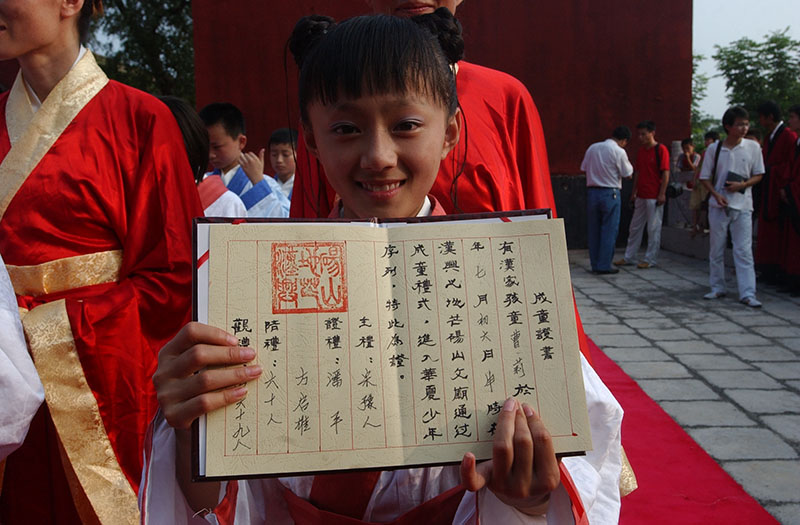 成童證書
有漢家孩童曹莉於
年七月初六日申時
漢興之地芒碭山文廟通過
成童禮式，進入華夏少年
序列。特此為證。
主禮：宋豫人
證禮：潘平
方启雄
陪禮：六十人
觀禮：六十九人